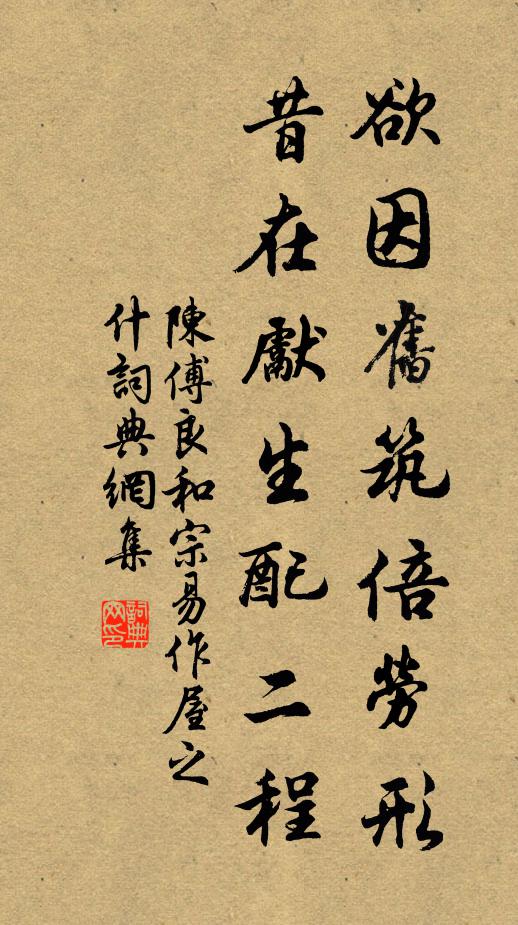 欲因舊筑倍勞形
昔在獻生配二程
陳傅良和宗易作屋之
什詞典網集
詞典網印